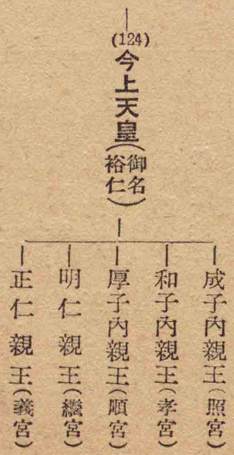 (124)
今上天皇(御名裕仁)
成子內親王(照宮)
和子內親王(孝宮)
厚子內親王(順宮)
明仁親王(繼宮)
正仁親王(義宮)